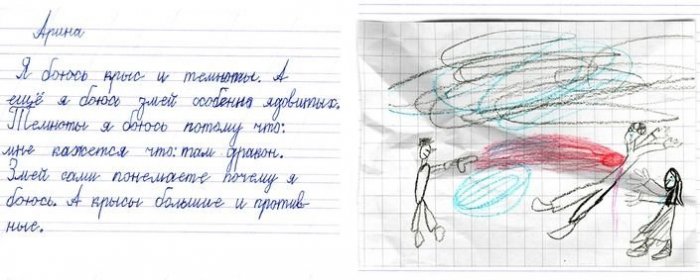 Арина
Я боюсь крыс и темноты. А
ещё я боюсь змей особенно ядовитых.
Темноты я боюсь потому что:
мне кажется что: там дракон.
Змей сами понемаете почему я
боюсь. А крысы большие и против-
ные.